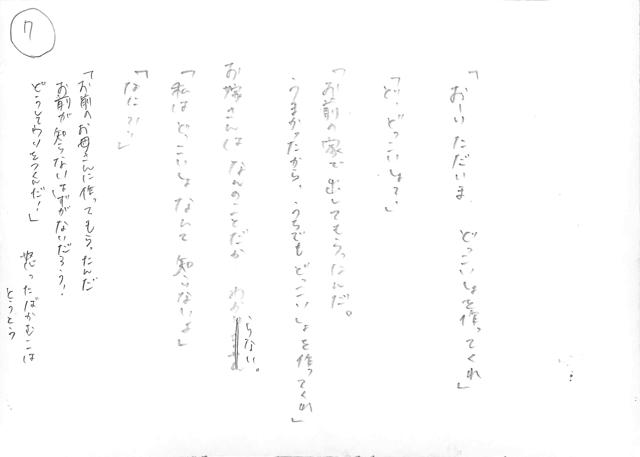 7
「おーいただいま　どっこいしょを作ってくれ」
「ど、どっこいしょてぃ
「お前の家で出してもらったんだ。
うまかったから、うちでもどっこいしょを作ってくれ」
お嫁さんは なんのことだか わからない。
「私はどっこいしょなんて 知らないよ」
「なにぃ!!」
「お前のお母さんに作ってもらったんだ
お前が知らないはずがないだろう！
どうしてウソをつくんだ！」
怒ったばかむこは
とうとう